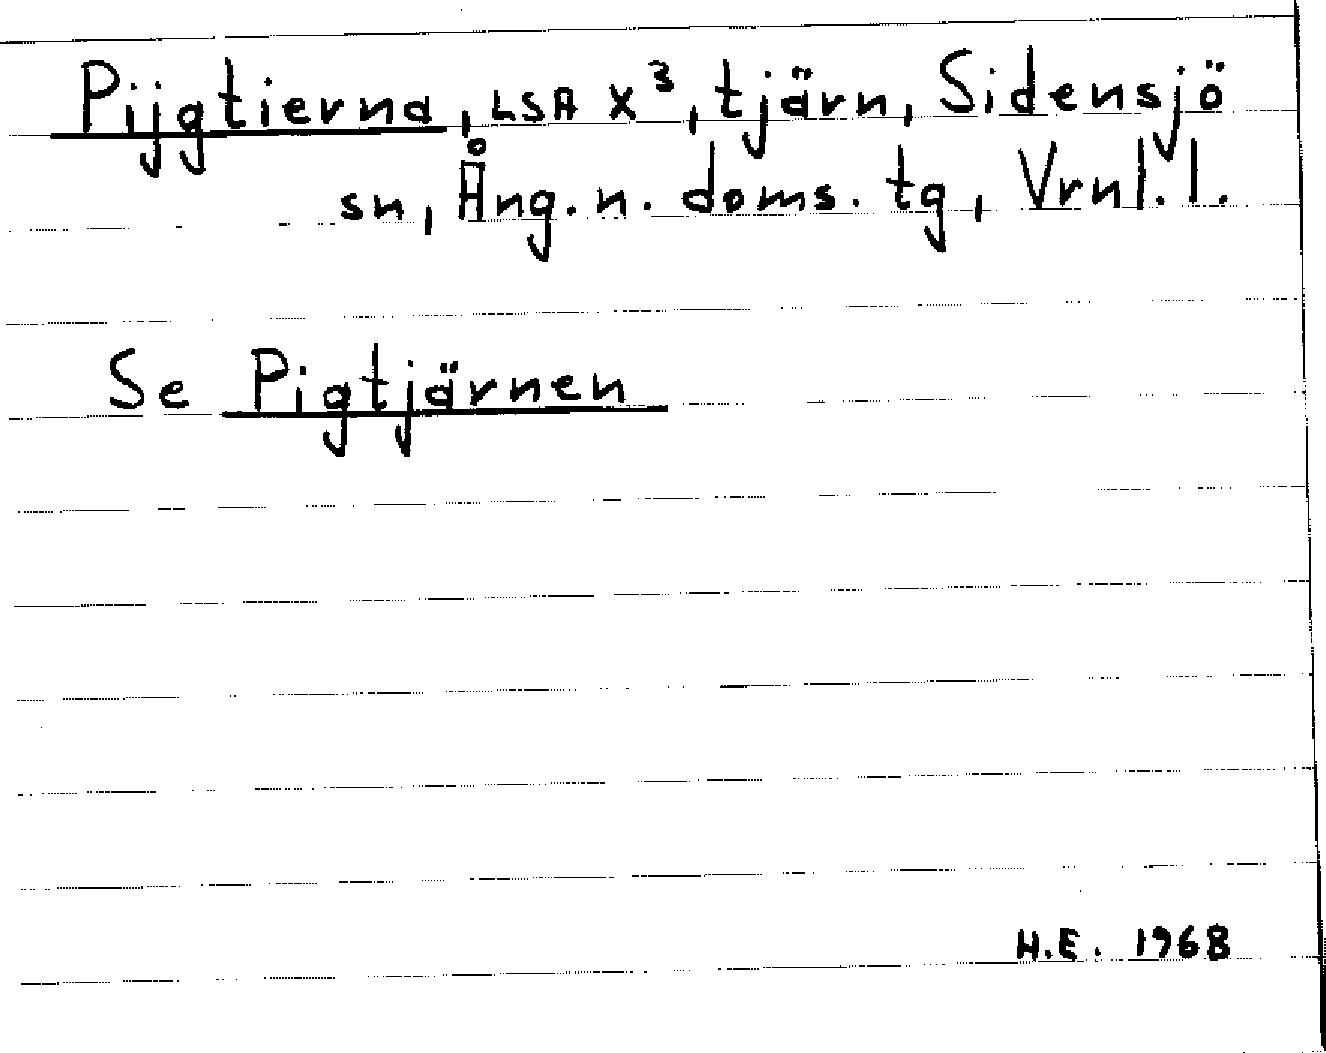 Pijgtierna, LSA X³, tjärn, Sidensjö
sn, Ång. n. doms. tg, Vrnl. l.
Se Pigtjärnen
H.E. 1968